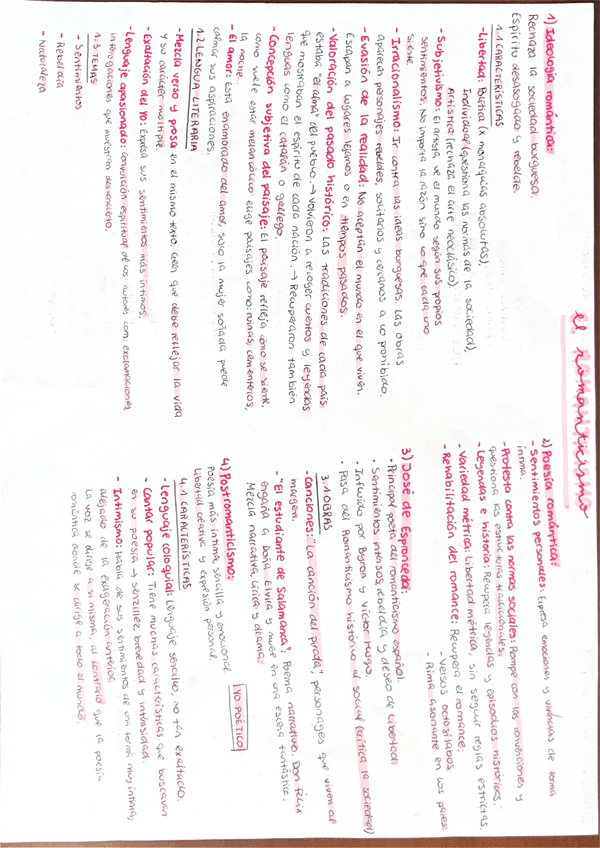 el romanticismo
1) Ideología romántica:
Rechaza la sociedad burguesa.
Espíritu desasogado y rebelde.
1.1 CARACTERÍSTICAS
- Libertad: Política (x monarquías absolutas),
Individual (questiona las normas de la sociedad),
Artística (rechaza el arte neoclásico)
- Subjetivismo: El artista ve el mundo según sus propios
sentimientos. No importa la razón sino lo que cada uno
siente.
- Irracionalismo: Ir contra las ideas burguesas. Las obras
aparecen personajes rebeldes, solitarios y cercanos a lo prohibido.
- Evasión de la realidad: No aceptan el mundo en el que viven.
Escapan a lugares lejanos o en tiempos pasados.
- Valoración del pasado histórico: Las tradiciones de cada país
estaba "el alma" del pueblo → volvieron a recoger cuentos y leyendas
que mostraban el espíritu de cada nación. → Recuperaron también
lenguas como el catalán o gallego.
- Concepción subjetiva del paisaje: El paisaje refleja cómo se siente,
como suele estar melancólico elige paisajes como: ruinas, cementerios,
la noche.
- El amor: Está enamorado del amor, solo la mujer soñada puede
calmar sus aspiraciones.
1.2 LENGUA LITERARIA
- Mezcla verso y prosa en el mismo texto. Creen que debe reflejar la vida
y su carácter múltiple.
- Exaltación del yo: Expresa sus sentimientos más íntimos.
- Lenguaje apasionado: convulsión espiritual de los autores con exclamaciones
interrogaciones que muestran desconcierto.
1.3 TEMAS:
- Sentimientos
- Rebeldía
- Naturaleza
2) Poesía romántica:
- Sentimientos personales: Expresa emociones y vivencias de forma
íntima.
- Protesta contra las normas sociales: Rompe con las convenciones y
questiona las estructuras tradicionales.
- Leyendas e historia: Recupera leyendas y episodios históricos.
- Variedad métrica: Libertad métrica, sin seguir reglas estrictas.
- Rehabilitación del romance: Recupera el romance:
- Versos octosílabos
- Rima asonante en los pares
3) José de Espronceda:
• Principal poeta del romanticismo español.
• Sentimientos intensos, rebeldía y deseo de libertad.
• Influido por Byron y Victor Hugo.
• Pasa del Romanticismo histórico al social (critica la sociedad)
3.1 OBRAS
- Canciones: "La canción del pirata", personajes que viven al
margen.
- "El estudiante de Salamanca": Poema narrativo. Don Félix
engaña a Doña Elvira y muere en una escena fantástica.
Mezcla narrativa, lírica y drama.
4) Postromanticismo:
Poesía más íntima, sencilla y emocional
Libertad creativa y expresión personal.
YO POÉTICO
4.1 CARACTERÍSTICAS
- Lenguaje coloquial: Lenguaje sencillo, no tan exaltado.
- Cantar popular: Tiene muchas características que buscaban
en su poesía → sencillez, brevedad y intensidad.
- Intimismo: Habla de sus sentimientos de una forma muy íntima,
alejado de la exageración anterior.
La voz se dirige a si misma, al contrario que la poesía
romántica donde se dirige a todo el mundo.